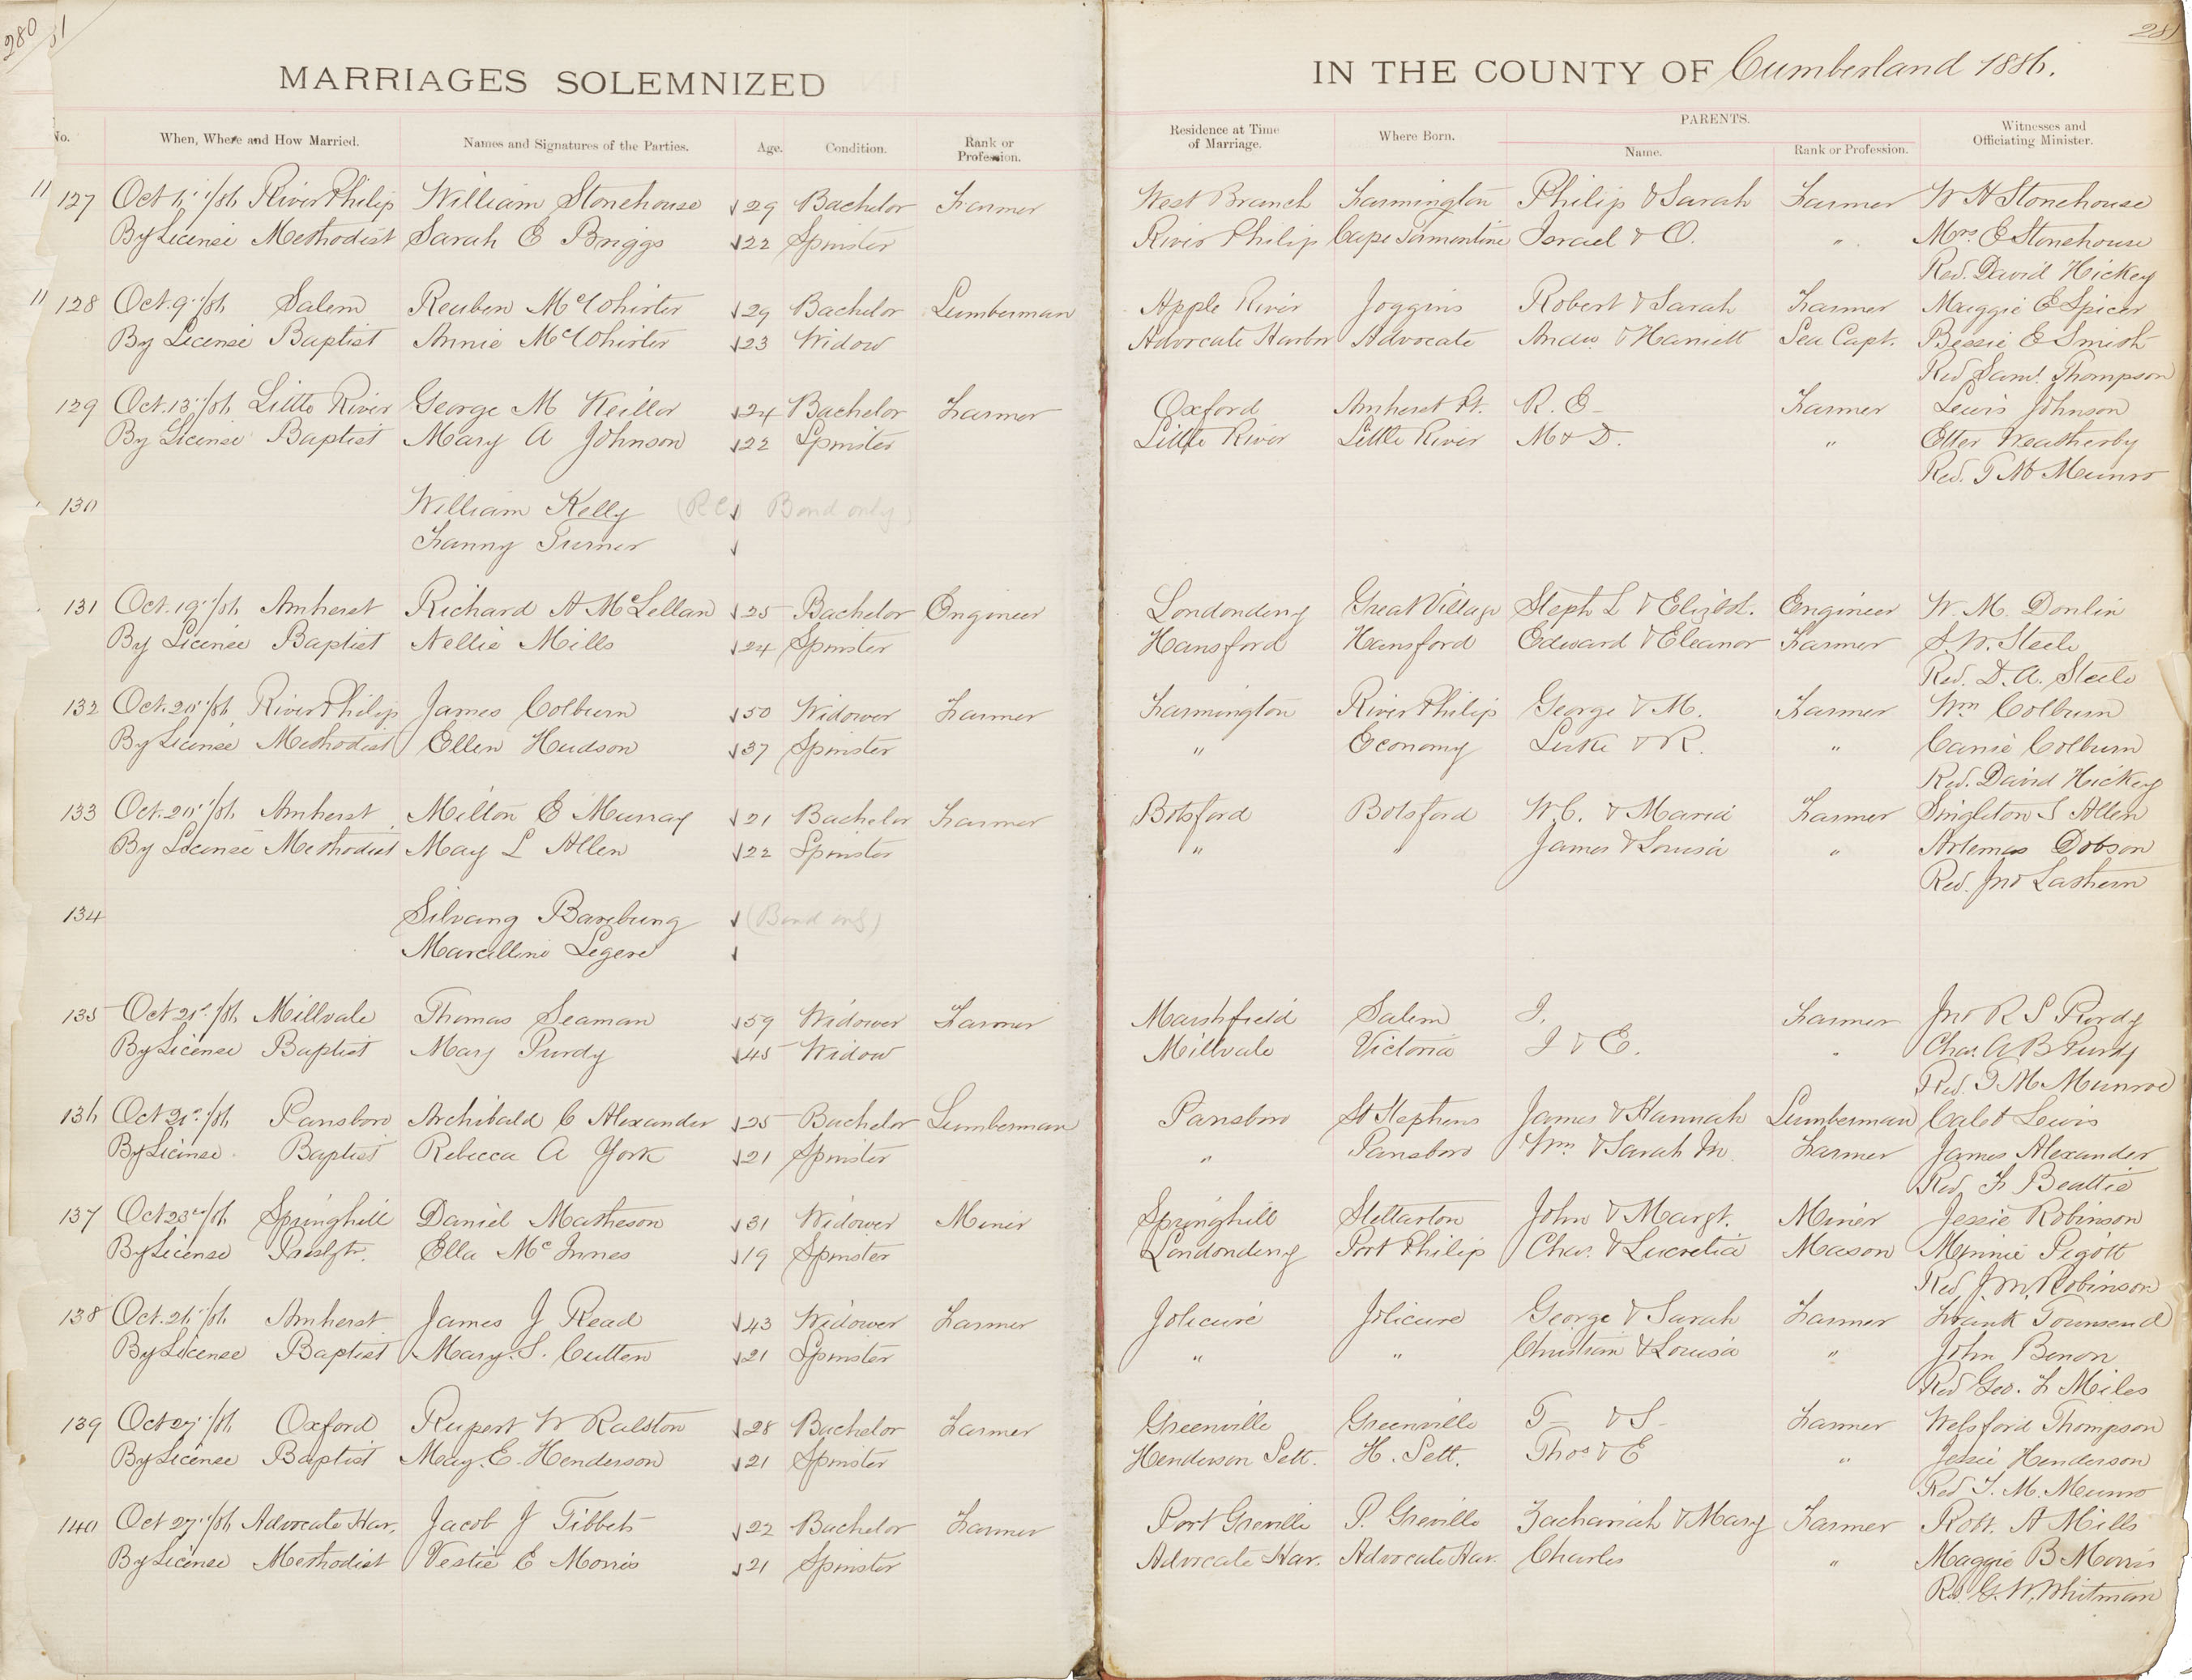 280
MARRIAGES SOLEMNIZED IN THE COUNTY OF Cumberland 1886. 281
PARENTS.
No. When, Where and How Married. Names and Signatures of the Parties. Age. Condition. Rank or Profession. Residence at Time of Marriage. Where Born. Name. Rank or Profession. Witnesses and Officiating Minister.
127 Oct 6"/86 River Philip William Stonehouse 29 Bachelor Farmer West Branch Farmington Philip & Sarah Farmer W H Stonehouse
By License Methodist Sarah E Briggs 22 Spinster River Philip Cape Tormentine Israel & O. " Mrs E Stonehouse
Rev. David Hickey
128 Oct. 9"/86 Salem Reuben McWhirter 29 Bachelor Lumberman Apple River Joggins Robert & Sarah Farmer Maggie E Spicer
By License Baptist Annie McWhirter 23 Widow Advocate Harbor Advocate Andw & Harriett Sea Capt. Bessie E Smith
Rev Saml. Thompson
129 Oct. 13"/86 Little River George M Keillor 24 Bachelor Farmer Oxford Amherst Pt. R. E- Farmer Lewis Johnson
By License Baptist Mary A Johnson 22 Spinster Little River Little River M & D. " Etter Weatherby
Rev. T M Munro
130 William Kelly (RC Bond only)
Fanny Turner
131 Oct. 19"/86 Amherst Richard A McLellan 25 Bachelor Engineer Londonderry Great Village Steph L & Elizbt. Engineer W. M. Donlin
By License Baptist Nellie Mills 24 Spinster Hansford Hansford Edward & Eleanor Farmer S. W. Steele
Rev. D. A. Steele
132 Oct. 20"/86 River Philip James Colburn 50 Widower Farmer Farmington River Philip George & M. Farmer Wm Colburn
By License Methodist Ellen Hudson 37 Spinster " Economy Luke & R. " Carrie Colburn
Rev. David Hickey
133 Oct. 20"/86 Amherst Milton E Murray 21 Bachelor Farmer Botsford Botsford W. C. & Maria Farmer Singleton S Allen
By License Methodist May L Allen 22 Spinster " " James & Louisa " Artemas Dobson
Rev. Jno
134 Silvang (Bond only)
Marcelline Legere
135 Oct 21st/86 Millvale Thomas Seaman 59 Widower Farmer Marshfield Salem J. Farmer Jno R S Purdy
By License Baptist Mary Purdy 45 Widow Millvale Victoria J & E. " Chas. A B Purdy
Rev. T M Munroe
136 Oct 21st/86 Parrsboro Archibald C Alexander 25 Bachelor Lumberman Parrsboro St Stephens James & Hannah Lumberman Caleb Lewis
By License. Baptist Rebecca A York 21 Spinster " Parrsboro Wm & Sarah M Farmer James Alexander
Rev. F Beattie
137 Oct 23rd/86 Springhill Daniel Matheson 31 Widower Miner Springhill Stellarton John & Margt. Miner Jessie Robinson
By License Presbytr. Ella McInnes 19 Spinster Londonderry Port Philip Chas. & Lucretia Mason Minnie Pigott
Rev. J. M. Robinson
138 Oct. 26"/86 Amherst James J Read 43 Widower Farmer Jolicure Jolicure George & Sarah Farmer Frank Townsend
By License Baptist Mary. S. Cutten 21 Spinster " " Christian & Louisa " John
Rev Geo. F Miles
139 Oct 27"/86 Oxford Rupert W Ralston 28 Bachelor Farmer Greenville Greenville T- & S- Farmer Welsford Thompson
By License Baptist May. E. Henderson 21 Spinster Henderson Sett. H. Sett. Thos & E " Jessie Henderson
Rev T. M. Munro
140 Oct 27"/86 Advocate Har. Jacob J Tibbets 22 Bachelor Farmer Port Greville P. Greville Zachariah & Mary Farmer Robt. A Mills
By License Methodist Vestie E Morris 21 Spinster Advocate Har. Advocate Har. Charles " Maggie B Morris
Rev. G. W. Whitman